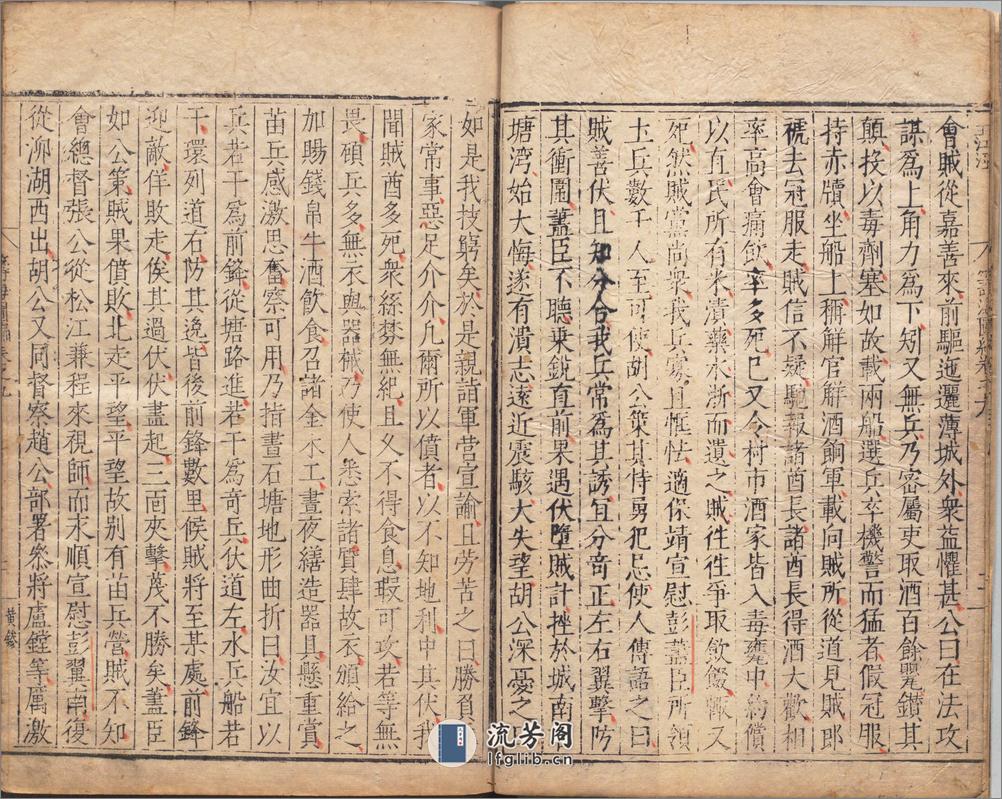 會賊從嘉善來前驅迤邐薄城外衆益懼甚公曰在法攻
謀爲上角力爲下矧又無兵乃密屬吏取酒百餘罌鑽其
顛投以毒劑塞如故載兩船選兵卒機警而猛者假冠服
持赤牘坐船上稱解官解酒餉軍載向賊所從道見賊即
褫去冠服走賊信不疑馳報諸酋長諸酋長得酒大歡相
率高會痛飲率多死已又令村市酒家皆入毒甕中約償
以直民所有米漬藥水淅而遺之賊徃徃爭取飲餒輒又
死然賊黨尚衆我兵寡且恇怯適保靖宣慰彭藎臣所領
土兵數千人至可使胡公策其恃勇犯忌使人傳語之曰
賊善伏且知分合我兵常爲其誘宜分奇正左右翼擊防
其衝圍藎臣不聽乘銳直前果遇伏墮賊計挫於城南
塘湾始大悔遂有潰志遠近震駭大失望胡公深憂之
如是我技窮矣於是親詣軍营宣諭且勞苦之曰勝負
家常事惡足介介凡爾所以僨者以不知地利中其伏我
聞賊酋多死衆絲棼無紀且又不得食息暇可攻若等無
畏碩兵多無衣與器械乃使人悉索諸質肆故衣頒給之
加賜錢帛牛酒飲食召諸金木工晝夜繕造器具懸重賞
苗兵感激思奮察可用乃指畫石塘地形曲折曰汝宜以
兵若干爲前鋒從塘路進若干爲奇兵伏道左水兵船若
干環列道右防其逸皆後前鋒數里候賊將至某處前鋒
迎敵佯敗走俟其過伏伏盡起三面夾擊蔑不勝矣藎臣
如公策賊果僨敗北走平望平望故别有苗兵營賊不知
會總督張公從松江兼程來視師而永順宣慰彭翼南復
從泖湖西出胡公又同督察趙公部署叅將盧鏜等厲激
黄鋑
流芳阁
lfglib.cn